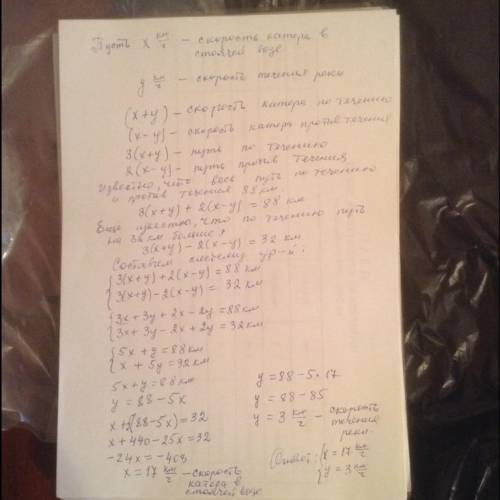 Пусть x км/ч – скорость катера в
стоячей воде
y км/ч – скорость течения реки
(x+y) – скорость катера по течению
(x-y) – скорость катера против течения
3(x+y) – путь по течению
2(x-y) – путь против течения
Известно, что весь путь по течению
и против течения 88 км.
3(x+y) + 2(x-y) = 88 км
Еще известно, что по течению путь
на 32 км больше:
3(x+y) - 2(x-y) = 32 км
Составим систему ур-й:
{3(x+y)+2(x-y) = 88 км
3(x+y)-2(x-y) = 32 км
{3x + 3y + 2x - 2y = 88 км
3x + 3y - 2x + 2y = 32 км
{5x + y = 88 км
x + 5y = 32 км
5x + y = 88 км
y = 88 - 5x
x + 5(88-5x) = 32
x + 440 - 25x = 32
-24x = -408
x = 17 км/ч – скорость
катера в
стоячей воде
y = 88 - 5·17
y = 88 - 85
y = 3 км/ч – скорость
течения
реки.
Ответ: {x = 17 км/ч
y = 3 км/ч